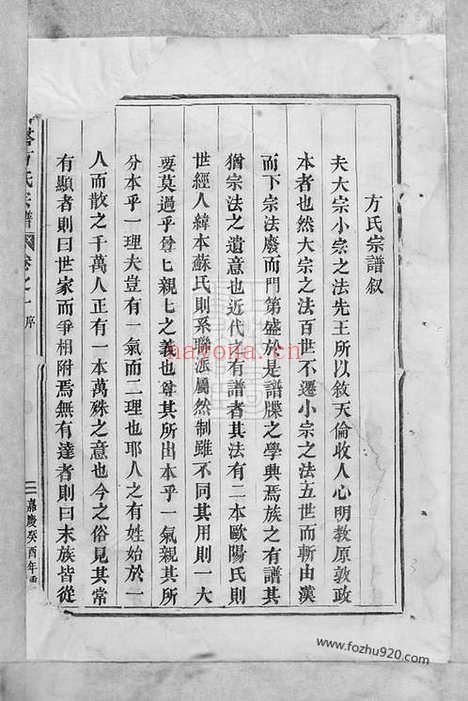 方氏宗譜叙
夫大宗小宗之法先王所以敘天倫收人心明教原敦政
本者也然大宗之法百世不遷小宗之法五世而斬由漢
而下宗法廢而門第盛於是譜牒之學興焉族之有譜其
猶宗法之遺意也近代之有譜者其法有二本歐陽氏則
世經人緯本蘇氏則系聯派屬然制雖不同其用則一大
要莫過乎尊匕親匕之義也尊其所出本乎一氣親其所
分本乎一理夫豈有一氣而二理也耶人之有姓始於一
人而散之千萬人正有一本萬殊之意也今之俗見其常
有顯者則曰世家而爭相附焉無有達者則曰末族皆從
方氏宗譜
卷之一 序
二 嘉慶癸酉年重
nayona.cn
www.fozhu920.com